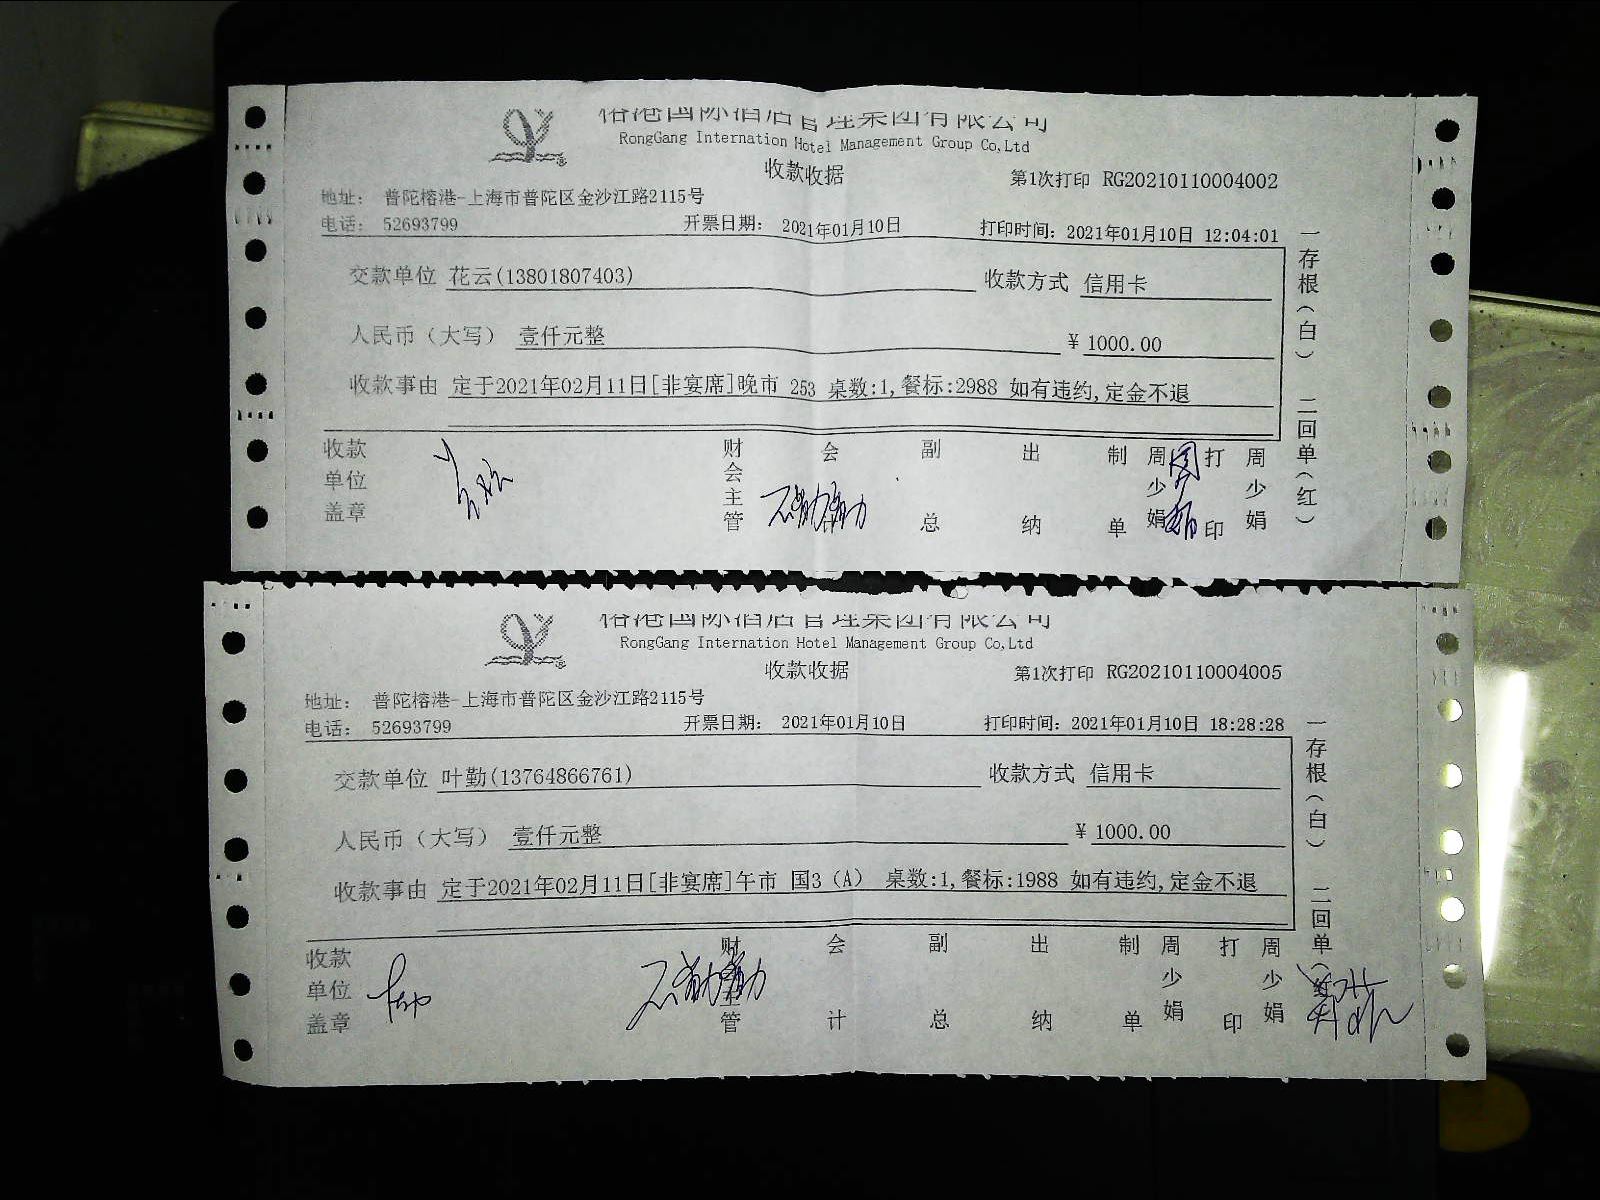 榕港国际酒店管理集团有限公司
RongGang Internation Hotel Management Group Co,Ltd
收款收据
第1次打印 RG20210110004002
地址: 普陀榕港-上海市普陀区金沙江路2115号
电话: 52693799 开票日期: 2021年01月10日 打印时间: 2021年01月10日 12:04:01
交款单位 花云(13801807403) 收款方式 信用卡
人民币（大写） 壹仟元整 ¥ 1000.00
收款事由 定于2021年02月11日[非宴席]晚市 253 桌数:1,餐标:2988 如有违约,定金不退
收款单位盖章 财会主管 会 副总 出纳 制单 周少娟 打印 周少娟
一存根（白） 二回单（红）
榕港国际酒店管理集团有限公司
RongGang Internation Hotel Management Group Co,Ltd
收款收据
第1次打印 RG20210110004005
地址: 普陀榕港-上海市普陀区金沙江路2115号
电话: 52693799 开票日期: 2021年01月10日 打印时间: 2021年01月10日 18:28:28
交款单位 叶勤(13764866761) 收款方式 信用卡
人民币（大写） 壹仟元整 ¥ 1000.00
收款事由 定于2021年02月11日[非宴席]午市 国3（A） 桌数:1,餐标:1988 如有违约,定金不退
收款单位盖章 财会主管 会计 副总 出纳 制单 周少娟 打印 周少娟
一存根（白） 二回单（红）